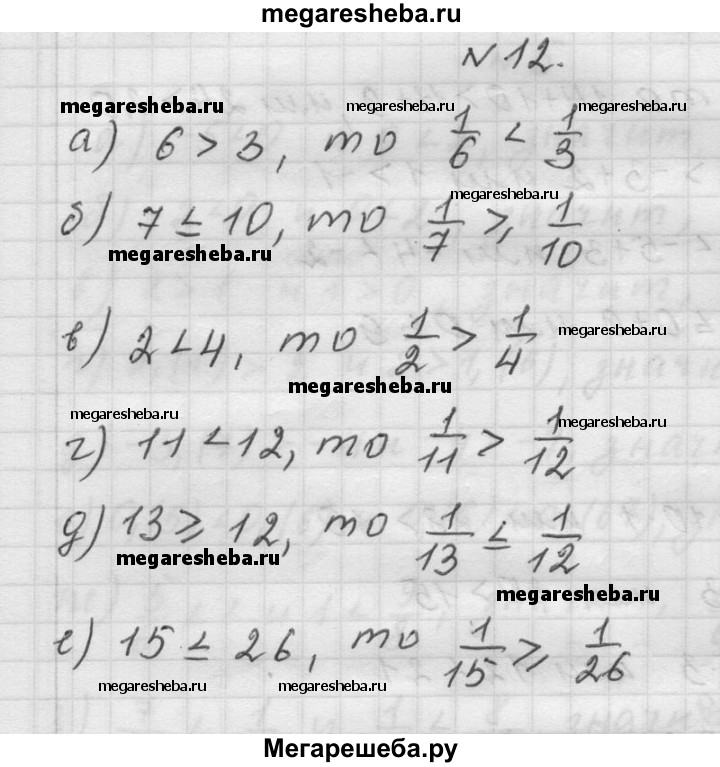 megaresheba.ru
N 12.
megaresheba.ru megaresheba.ru megaresheba.ru
а) 6 > 3, то 1/6 < 1/3
megaresheba.ru
б) 7 ≤ 10, то 1/7 ≥ 1/10
megaresheba.ru
в) 2 < 4, то 1/2 > 1/4
megaresheba.ru
megaresheba.ru
megaresheba.ru megaresheba.ru
г) 11 < 12, то 1/11 > 1/12
д) 13 ≥ 12, то 1/13 ≤ 1/12
megaresheba.ru
megaresheba.ru
е) 15 ≤ 26, то 1/15 ≥ 1/26
megaresheba.ru megaresheba.ru
Мегарешеба.ру